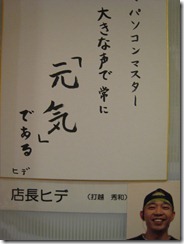 パソコンマスター
大きな声で常に
「元気」
である
ヒデ
店長ヒデ
(打越 秀和)